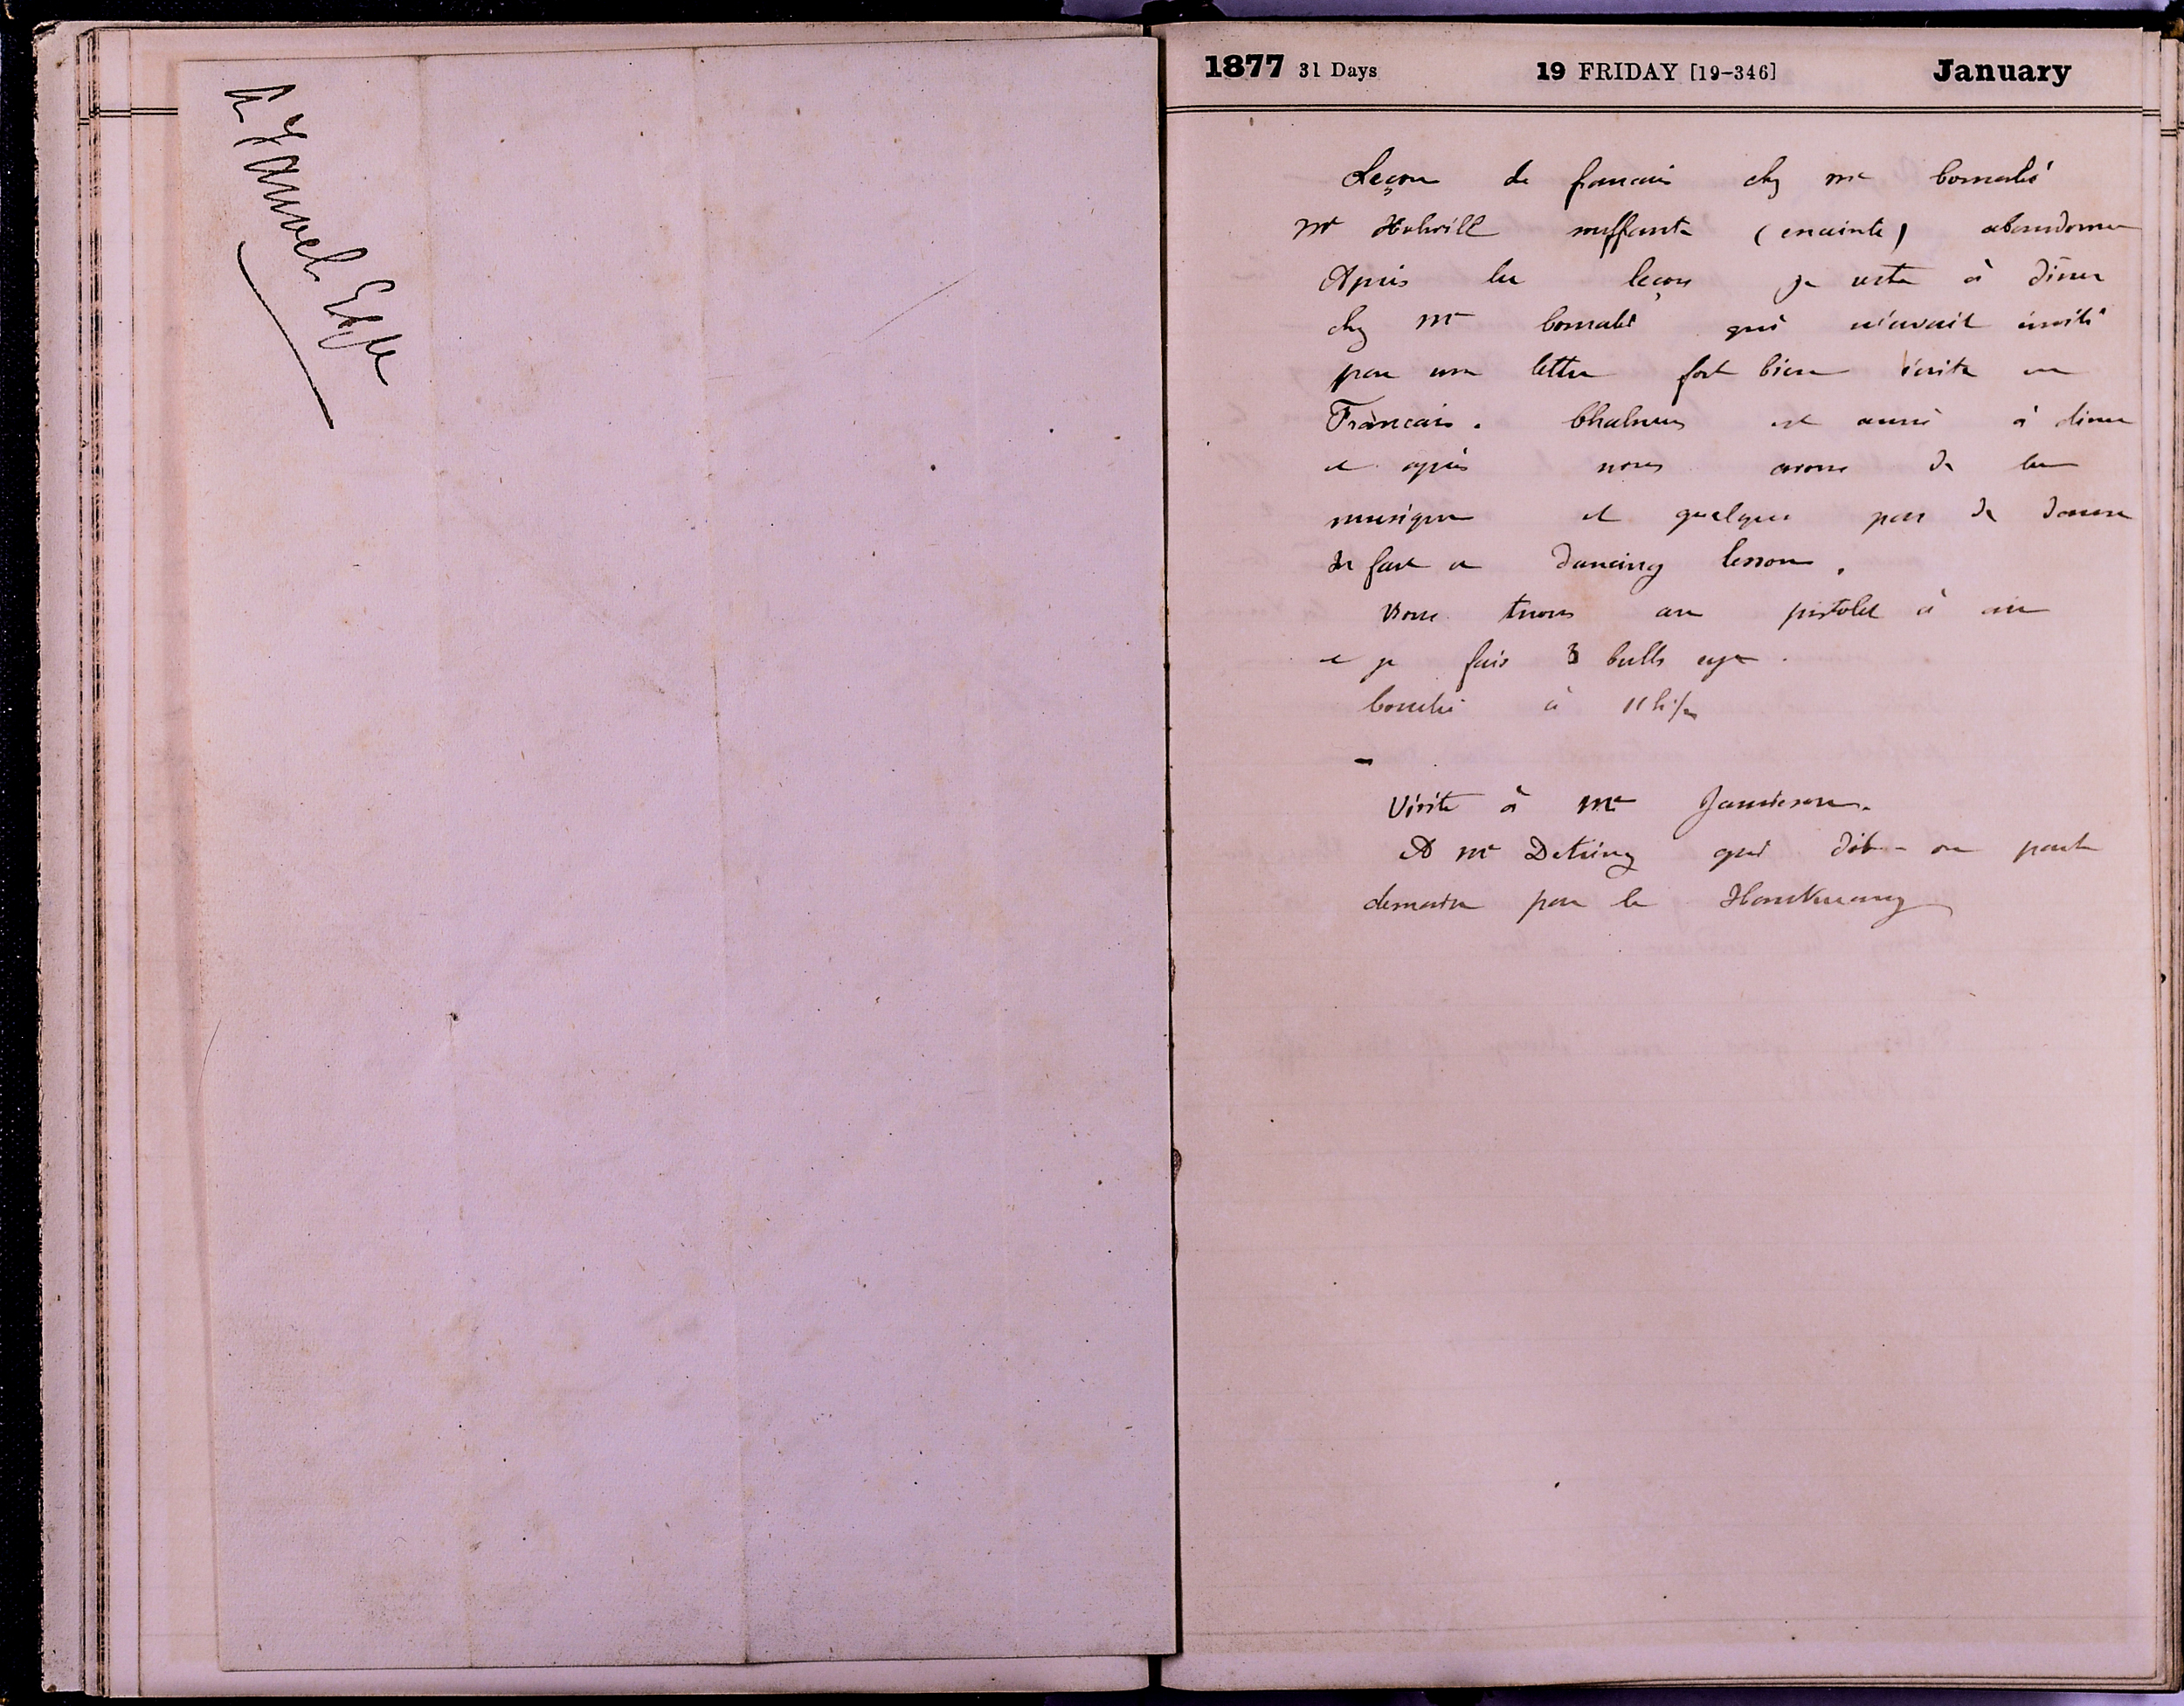 A Fauvel Esqre
1877 31 Days 19 FRIDAY [19-346] January
Leçon de francais chez me
me souffrante (enceinte) abandonne
Après la leçon je reste à dîner
chez Me qui m'avait invité
par une lettre fort bien écrite en
Français. Chalmers est aussi à diner
et après nous avons de la
musique et quelques pas de danse
In fact a dancing lesson.
Nous tirons au pistolet à air
et je fais 3 bulls eye.
Couché à 11h ½
–
Visite à Me Jamieson.
A Me Detring qui dit-on part
demain par le